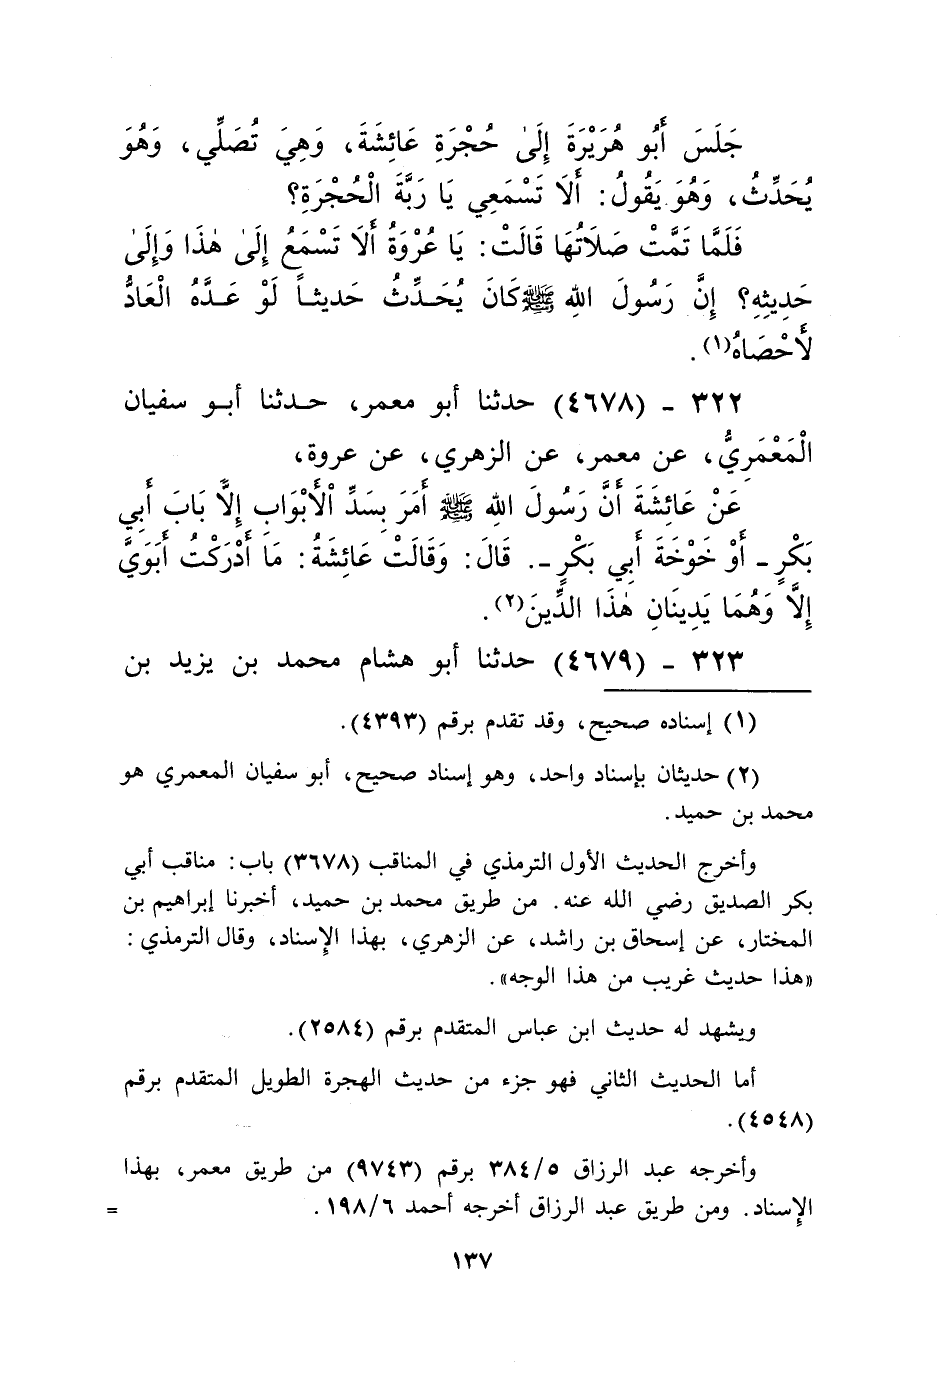 جَلَسَ أَبُو هُرَيْرَةَ إِلَىٰ حُجْرَةِ عَائِشَةَ، وَهِيَ تُصَلِّي، وَهُوَ
يُحَدِّثُ، وَهُوَ يَقُولُ: أَلَا تَسْمَعِي يَا رَبَّةَ الْحُجْرَةِ؟
فَلَمَّا تَمَّتْ صَلَاتُهَا قَالَتْ: يَا عُرْوَةُ أَلَا تَسْمَعُ إِلَىٰ هٰذَا وَإِلَىٰ
حَدِيثِهِ؟ إِنَّ رَسُولَ اللهِ ﷺ كَانَ يُحَدِّثُ حَدِيثاً لَوْ عَدَّهُ الْعَادُّ
لَأَحْصَاهُ(١).
٣٢٢ - (٤٦٧٨) حدثنا أبو معمر، حدثنا أبو سفيان
الْمَعْمَرِيُّ، عن معمر، عن الزهري، عن عروة،
عَنْ عَائِشَةَ أَنَّ رَسُولَ اللهِ ﷺ أَمَرَ بِسَدِّ الْأَبْوَابِ إِلَّا بَابَ أَبِي
بَكْرٍ - أَوْ خَوْخَةَ أَبِي بَكْرٍ -. قَالَ: وَقَالَتْ عَائِشَةُ: مَا أَدْرَكْتُ أَبَوَيَّ
إِلَّا وَهُمَا يَدِينَانِ هٰذَا الدِّينَ(٢).
٣٢٣ - (٤٦٧٩) حدثنا أبو هشام محمد بن يزيد بن
(١) إسناده صحيح، وقد تقدم برقم (٤٣٩٣).
(٢) حديثان بإسناد واحد، وهو إسناد صحيح، أبو سفيان المعمري هو
محمد بن حميد.
وأخرج الحديث الأول الترمذي في المناقب (٣٦٧٨) باب: مناقب أبي
بكر الصديق رضي الله عنه. من طريق محمد بن حميد، أخبرنا إبراهيم بن
المختار، عن إسحاق بن راشد، عن الزهري، بهذا الإسناد، وقال الترمذي:
«هذا حديث غريب من هذا الوجه».
ويشهد له حديث ابن عباس المتقدم برقم (٢٥٨٤).
أما الحديث الثاني فهو جزء من حديث الهجرة الطويل المتقدم برقم
(٤٥٤٨).
وأخرجه عبد الرزاق ٣٨٤/٥ برقم (٩٧٤٣) من طريق معمر، بهذا
الإسناد. ومن طريق عبد الرزاق أخرجه أحمد ١٩٨/٦. =
١٣٧